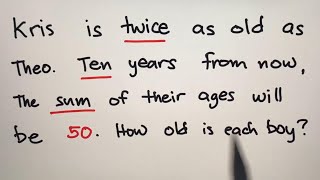 Kris is twice as old as
Theo. Ten years from now,
The sum of their ages will
be 50. How old is each boy?